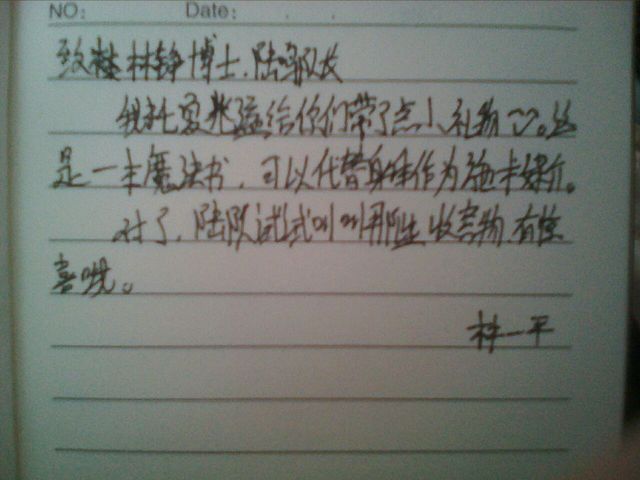 NO: Date:
致 林铮博士、陆鸣队长
我托夏兆 给你们带了点小礼物~。这
是一本魔法书，可以代替身体作为施卡媒介。
对了，陆队试试叭叭用 收容物，有惊
喜哦。
林一平